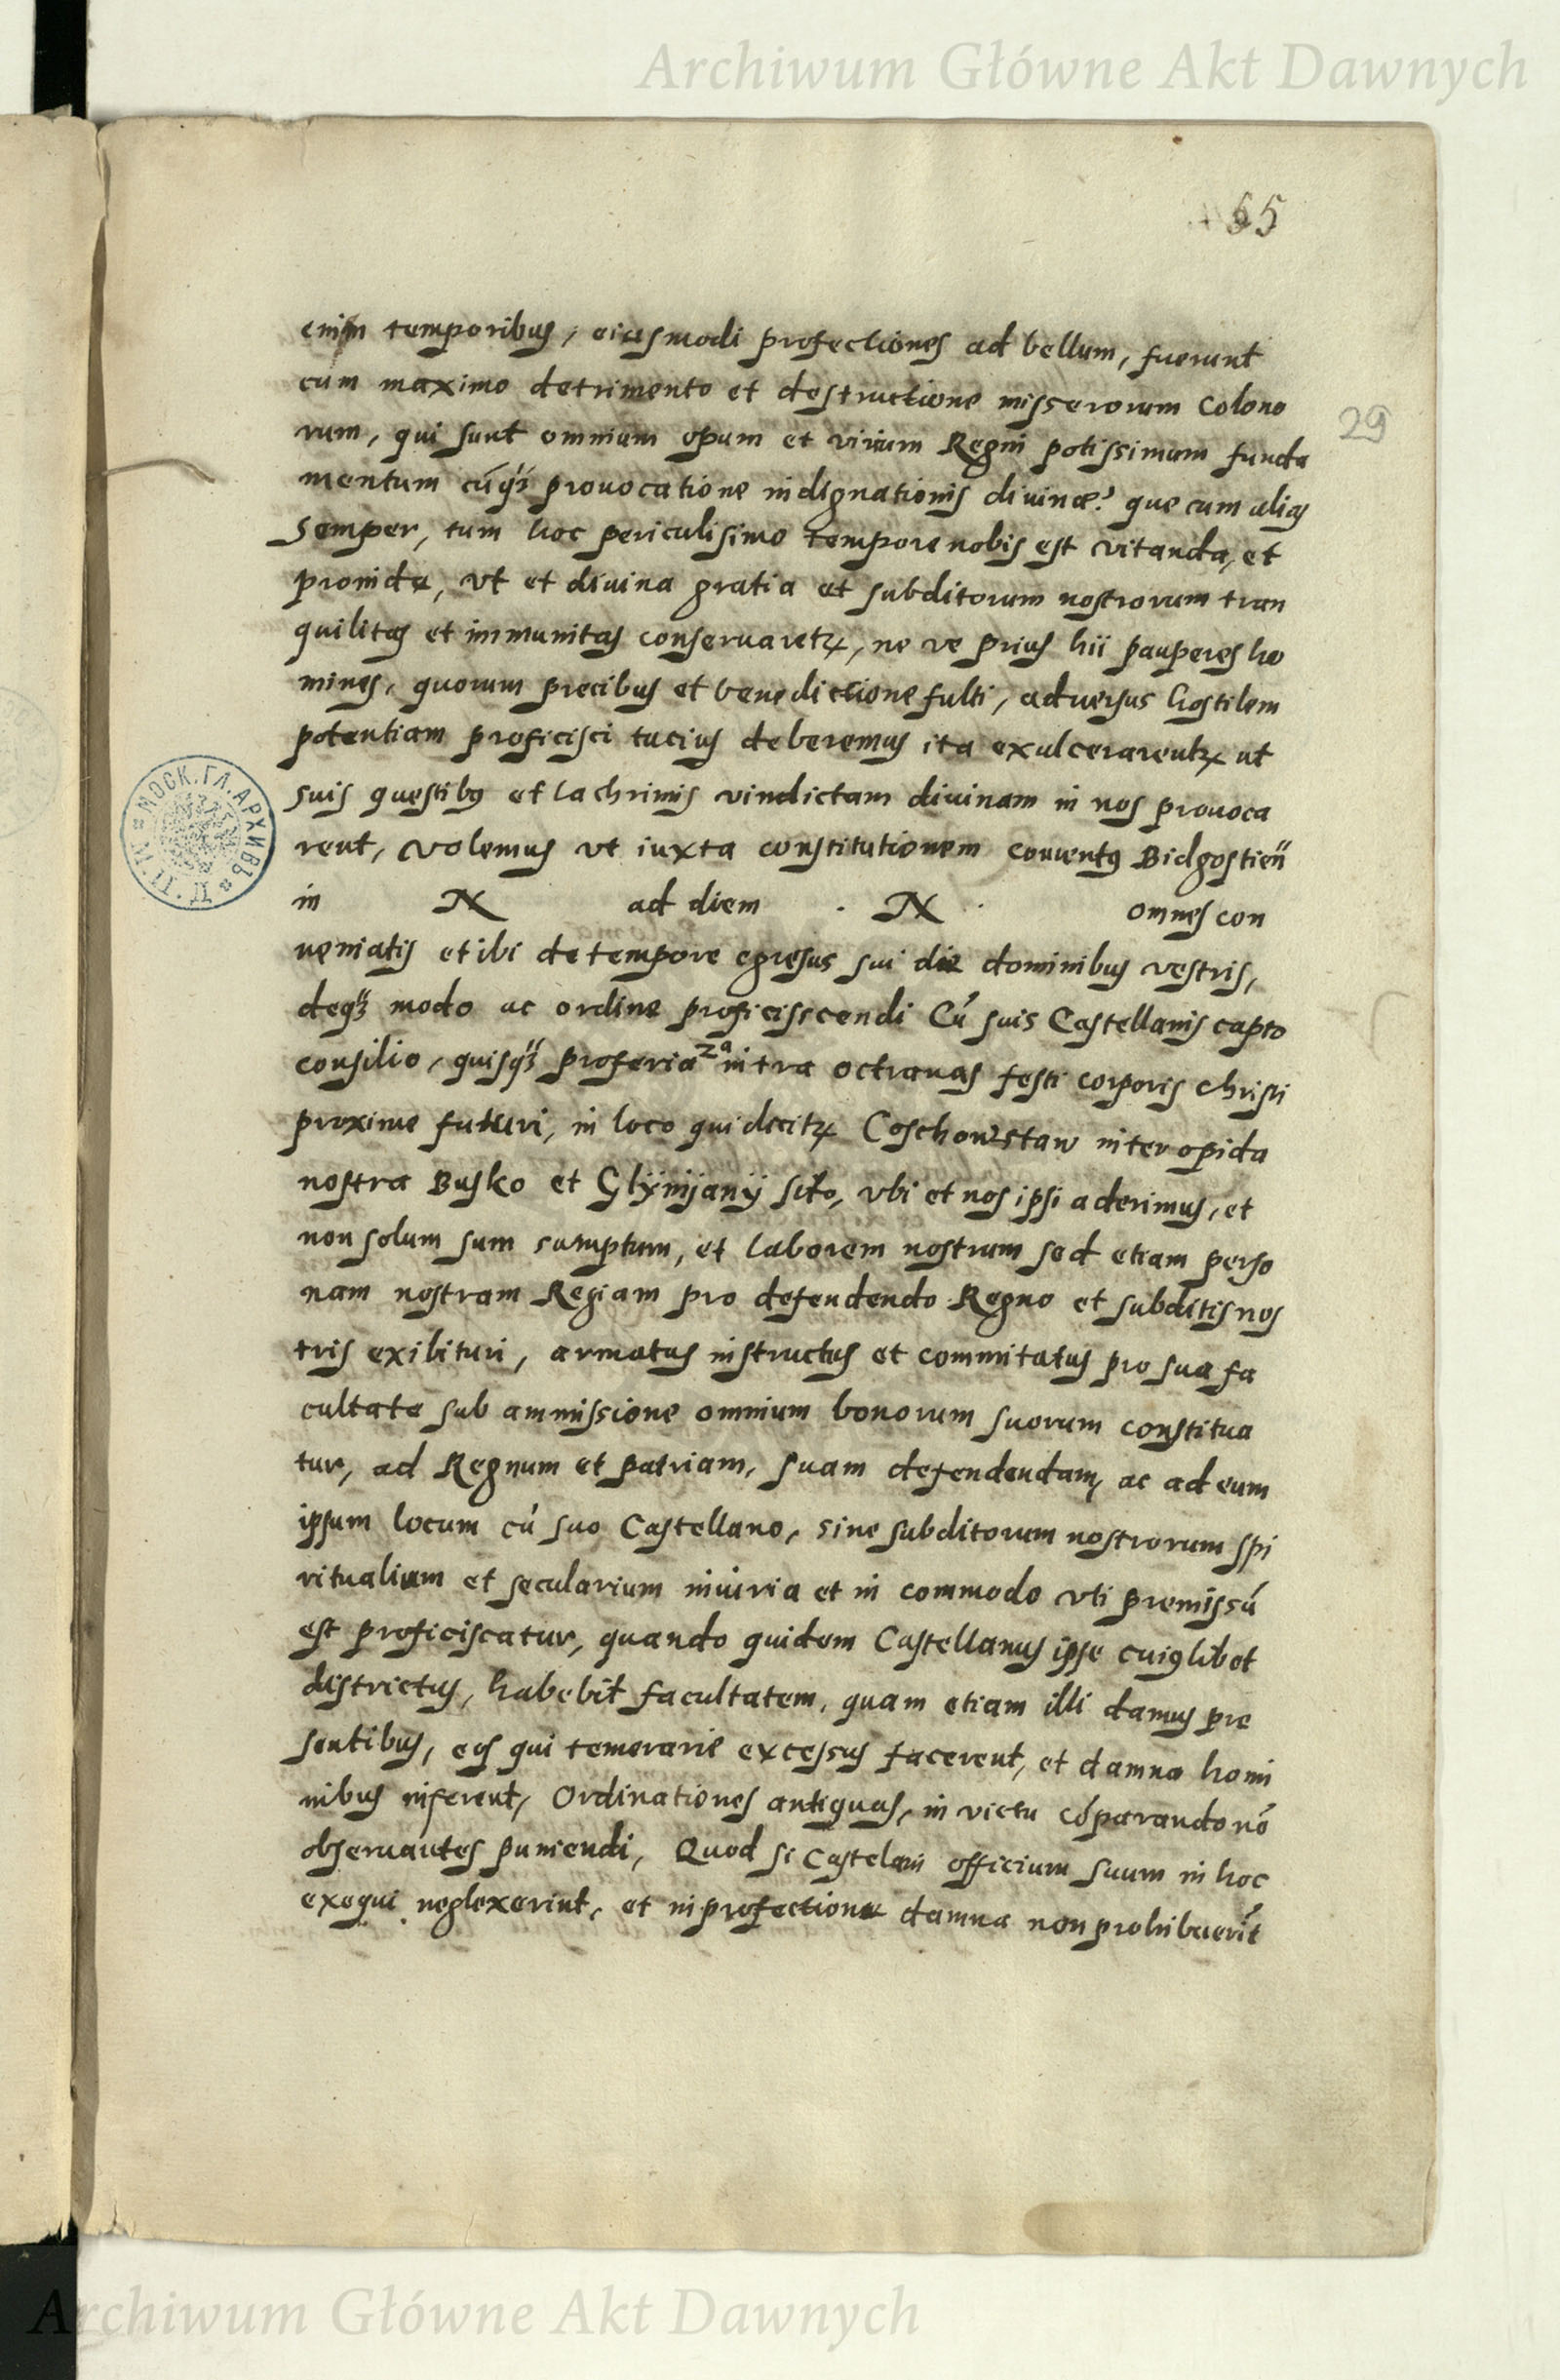 Archiwum Główne Akt Dawnych
65
29
enim temporibus, eiusmodi profectiones ad bellum, fuerunt
cum maximo detrimento et destructione misserorum Colono
rum, qui sunt omnium opum et virium Regni potissimum funda
mentum cūq₃ provocatione indignationis divinæ? que cum alias
Semper, tum hoc periculisimo tempore nobis est vitanda, et
provida, vt et divina gratia et subditorum nostrorum tran
quilitas et immunitas conservaretꝝ, ne ve prius hii pauperes ho
mines, quorum precibus et benedictione fulti, adversus hostilem
potentiam proficisci tucius deberemus ita exulcerarentꝝ ut
suis questibꝰ et lachrimis vindictam divinam in nos provoca
rent, volemus vt iuxta constitutionem conventꝰ Bidgostien̄
in N ad diem . N . omnes con
veniatis et ibi de tempore egresus sui de dominibus vestris,
deq₃ modo ac ordine proficisscendi Cū suis Castellanis capto
consilio, quisq₃ pro feria 2ª intra octravas festi corporis Christi
proxime futuri, in loco qui dicitꝝ Coschowstaw inter opida
nostra Busko et Glÿnÿanÿ sito, vbi et nos ipsi aderimus, et
non solum sum sumptum, et laborem nostrum sed etiam perso
nam nostram Regiam pro defendendo Regno et subditis nos
tris exibituri, armatus instructus et commitatus pro sua fa
cultate sub ammissione omnium bonorum suorum constitua
tur, ad Regnum et patriam, suam defendendam, ac ad eum
ipsum locum cū suo Castellano, sine subditorum nostrorum spi
ritualium et secularium iniuria et in commodo vti premissū
est proficiscatur, quando quidem Castellanus ipse cuiꝰlibet
districtus, habebit facultatem, quam etiam illi damus pre
sentibus, eos qui temerarie excessus facerent, et damna homi
nibus inferent, Ordinationes antiquas, in victu cōparando nō
observantes puniendi, Quod si Castelani officium suum in hoc
exequi neglexerint, et in profectione damna non prohibuerīt
МОСК. ГЛ. АРХИВЪ
Archiwum Główne Akt Dawnych